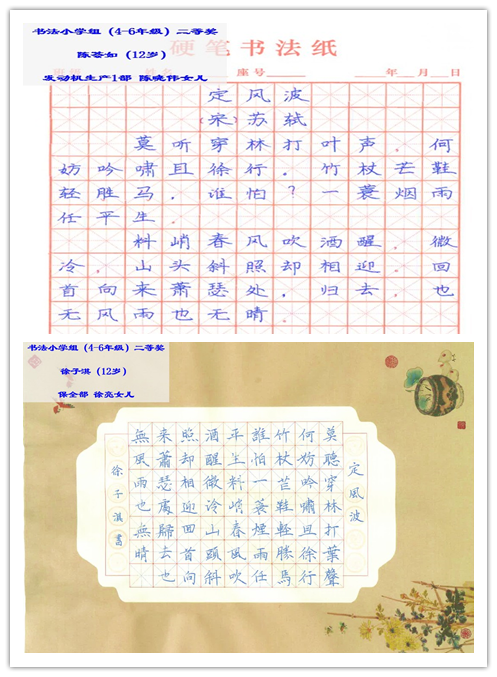 书法小学组（4-6年级）二等奖
（12岁）
发动机生产1部 陈晓伟女儿
硬笔书法纸
座号 年 月 日
定风波
（宋）苏轼
莫听穿林打叶声，何
妨吟啸且徐行。竹杖芒鞋
轻胜马，谁怕？一蓑烟雨
任平生。
料峭春风吹酒醒，微
冷，山头斜照却相迎。回
首向来萧瑟处，归去，也
无风雨也无晴。
书法小学组（4-6年级）二等奖
徐子淇（12岁）
保全部 徐亮女儿
定風波
莫聽穿林打葉聲
何妨吟嘯且徐行
竹杖芒鞋輕勝馬
誰怕一蓑煙雨任
平生料峭春風吹
酒醒微冷山頭斜
照却相迎回首向
來蕭瑟處歸去也
無風雨也無晴
徐子淇書